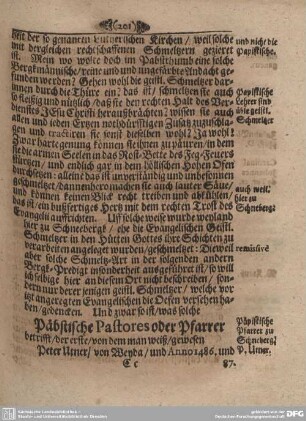 (201)
heit der so genanten Lutherischen Kirchen/ weil solche
mit dergleichen rechtschaffenen Schmeltzern gezieret
ist. Mein wo wolte doch im Pabstthumb eine solche
Bergkmännische/reine und und ungefärbte Andacht ge-
funden werden? Gehen wohl die geistl. Schmeltzer dar-
innen durch die Thüre ein? das ist/ schmeltzen sie auch
so fleißig und nützlich/ daß sie den rechten Halt des Ver-
dienstes JEsu Christi herausbringen? wissen sie auch
allen und jeden Ertzen nothdürfftigen Zusatz zuzuschla-
gen und tractiren sie sonst dieselben wohl? Ja wohl!
Zwar hart genung können sie ihnen zu pauren/ in dem
sie die armen Seelen in das Rost-Bette des Feg-Feuers
stürtzen/ und endlich gar in den Höllischen Hohen Ofen
durchsetzen: alleine das ist ungegründet und unbesonnen
geschmeltzet/ dannenhero machen sie auch lauter Säue/
und können keinen Blick recht treiben und abkühlen/
das ist/ ein bußfertiges Hertz mit dem rechten Trost des
Evangelii auffrichten. Uff solche weise wurde weyland
hier zu Schneebergk/ ehe die Evangelischen Geistl.
Schmeltzer in den Hütten Gottes ihre Schichten zu
verarbeiten angeleget wurden/ geschmeltzet; Dieweil
aber solche Schmeltz-Art in der folgenden andern
Bergk-Predigt insonderheit ausgeführet ist/ so will
ich selbige hier an diesem Ort nicht beschreiben/ son-
dern nur derer jenigen geistl. Schmeltzer/ welche vor
itzt angeregten Evangelischen die Oefen versehen ha-
ben/ gedencken. Und zwar so ist/ was solche
Päbstische Pastores oder Pfarrer
betrifft/ der erste/ von dem man weiß/ gewesen
Peter Urner/ von Weyda/ und Anno 1486. und
Cc
87.
und nicht die
Papistische.
papistische
Lehrer sind
böse geistl.
Schmeltzer
auch weil.
hier zu
Schnebergk
remissivè
Päpistische
Pfarrer zu
Schneeberg
P. Urner.
DFG